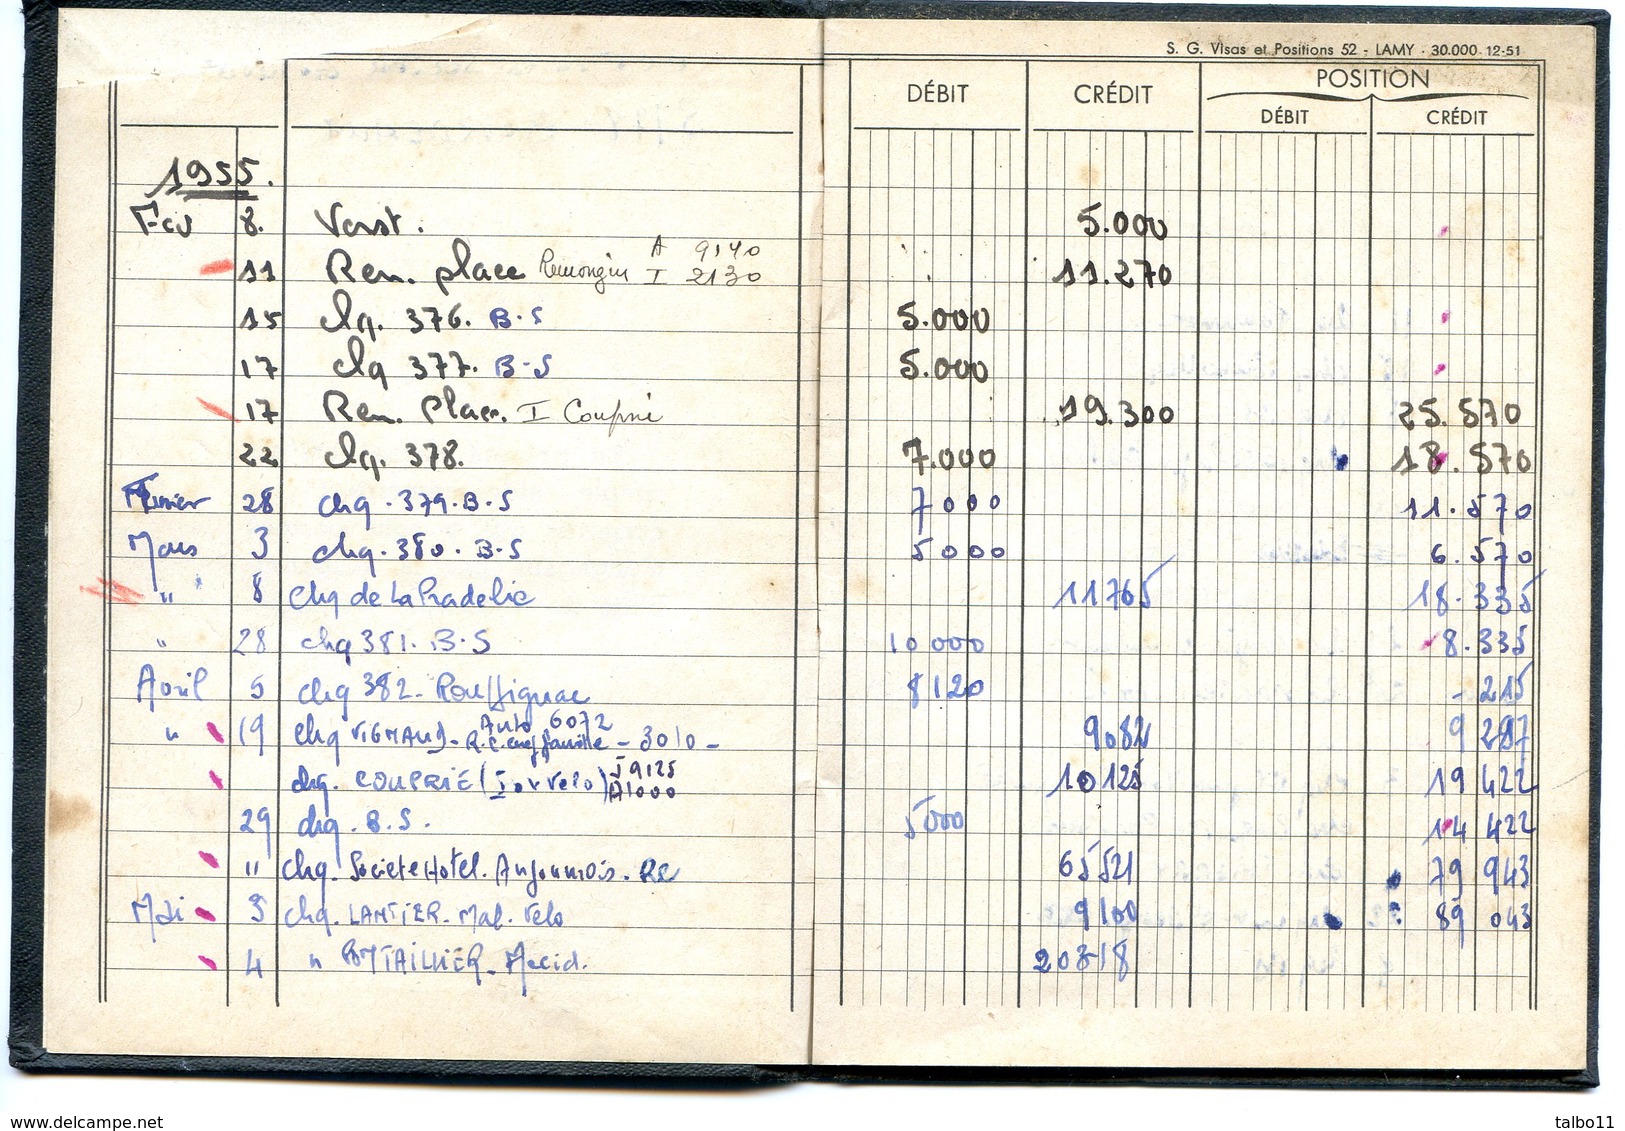 S. G. Visas et Positions 52 - LAMY - 30.000 12-51
DÉBIT CRÉDIT POSITION
DÉBIT CRÉDIT
1955.
Fev 8. Verst. 5.000
11 Rem. place Remongin A 9140 I 2130 11.270
15 chq. 376. B-S 5.000
17 chq 377. B-S 5.000
17 Rem. Place. I Couprie 19.300 25.570
22 chq. 378. 7.000 18.570
28 chq. 379. B-S 7000 11.570
Mars 3 chq. 380. B-S 5000 6.570
" 8 chq de La Pradelie 11765 18.335
" 28 chq 381. B-S 10000 8.335
Avril 5 chq 382. Rouffignac 8120 - 215
" 19 chq VIGNAUD - Auto 6072 R.C. chef famille - 3010 - 9082 9 297
chq. COUPRIE (I or velo) I 9125 A 1000 10125 19 422
29 chq. B.S. 5000 14 422
" chq. Societe Hotel. Angoumois. RC 65521 79 943
Mai 3 chq. LANTIER - Mal. Velo 9100 89 043
4 " - Accid. 20818
www.delcampe.net
talbo11